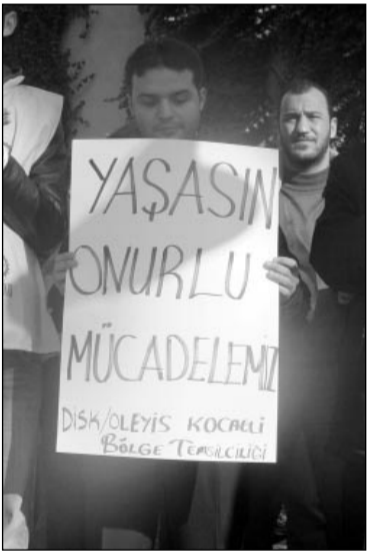 YAŞASIN
ONURLU
MÜCADELEMİZ
DİSK/OLEYİS KOCAELİ
BÖLGE TEMSİLCİLİĞİ